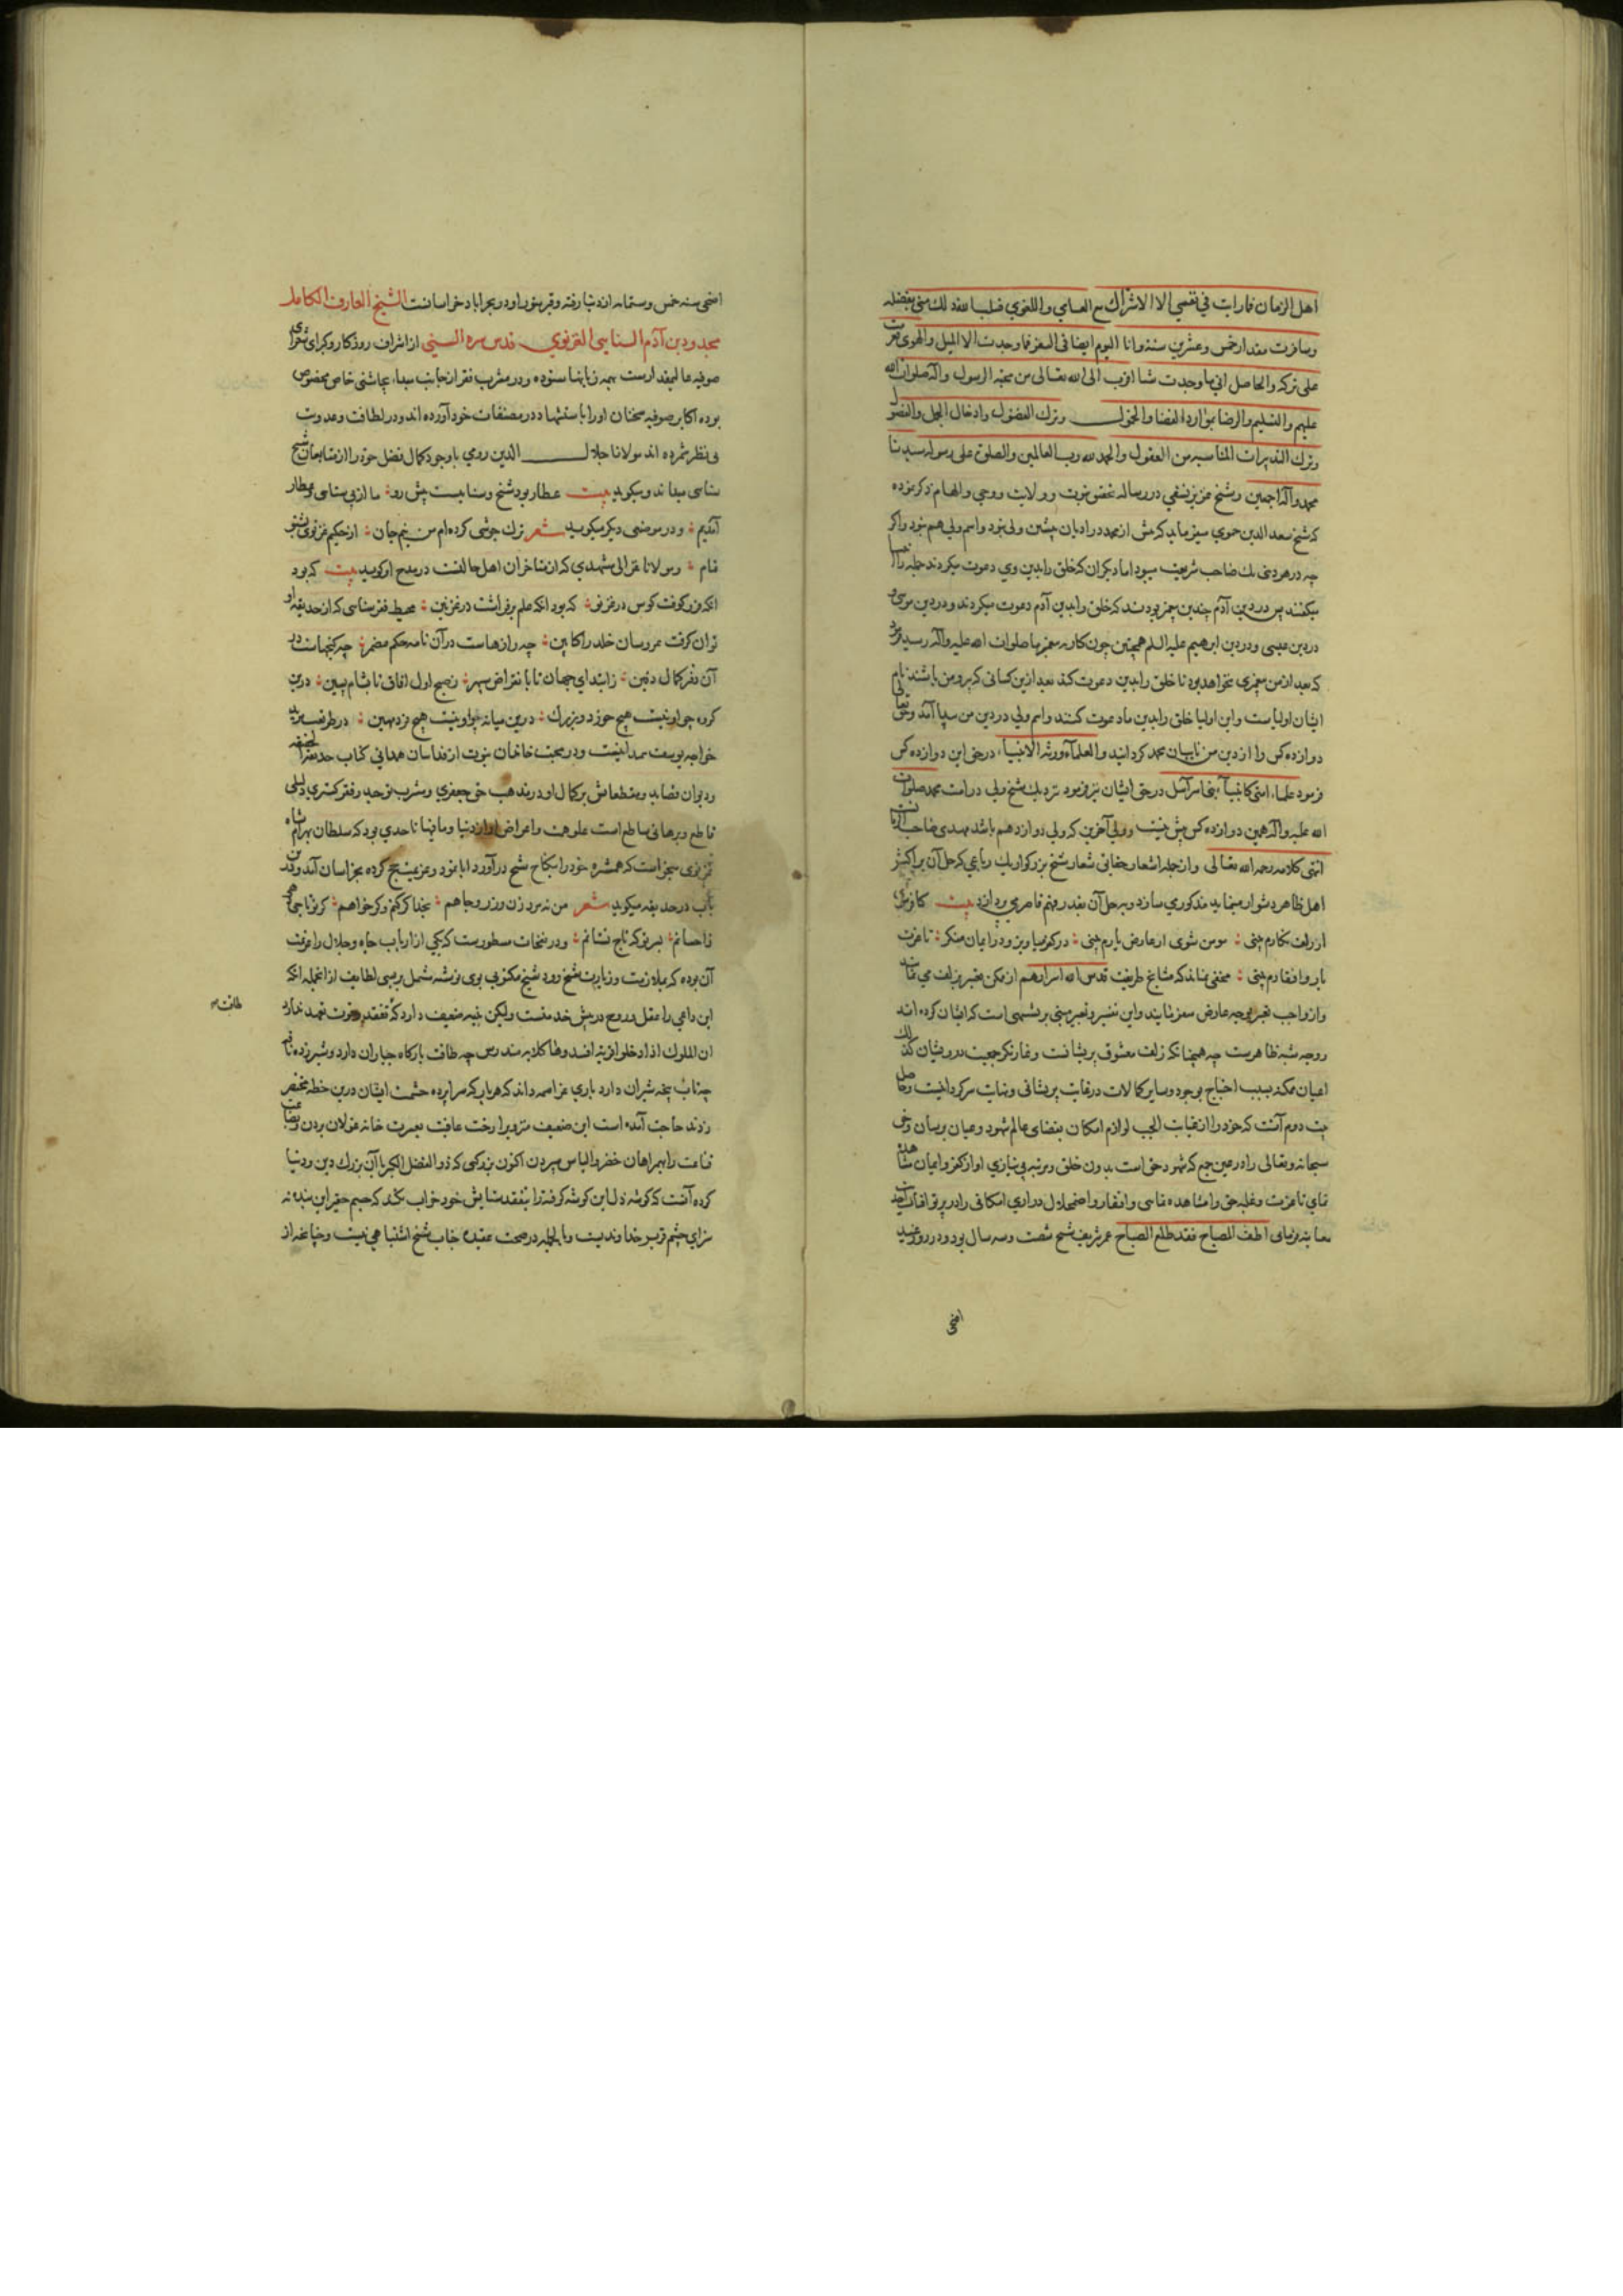 اهل الزمان فارات في نفسي الا الاشراك مع العامي واللغوي فبلسا فقد لك منى بفضله
وسافرت مقدار خمس وعشرين سنة وانا اليوم ايضا في السفر فما وجدت الا الميل والهوى فعزمت
على تركه والحاصل اني ما وجدت شيا اقرب الى الله تعالى من محبة الرسول وآله صلوات الله
عليهم والتسليم والرضا بموارد القضا والخمول وترك الفضول وادخال الجهل والفضول
وترك التدبيرات المناسبة من العقول والحمد لله رب العالمين والصلوة على رسوله سيدنا
محمد وآله اجمعين وشيخ عزيز نسفي در رساله تحقيق نبوت وولايت ووحي والهام ذكر نموده
كه شيخ سعد الدين حموي ميفرمايد كه پيش از محمد در اديان پيشين ولي نبود واسم ولي هم نبود واگر
چه در هر ديني يك صاحب شريعت ميبود اما ديگران كه خلق را بدين وي دعوت ميكردند جمله را انبيا
ميگفتند پس در دين آدم چندين پيغمبر بودند كه خلق را بدين آدم دعوت ميكردند ودر دين موسى و
در دين عيسى ودر دين ابرهيم عليه السلم همچنين چون كار به پيغمبر ما صلوات الله عليه وآله رسيد فرمود
كه بعد از من پيغمبري نخواهد بود تا خلق را بدين دعوت كند بعد ازين كسانى كه پيرو من باشند نام
ايشان اولياست واين اوليا خلق را بدين ما دعوت كنند واسم ولي در دين من پيدا آمد وحق تعالى
دوازده كس را از دين من نايبان محمد گردانيد والعلماء ورثة الانبياء، در حق اين دوازده كس
فرمود علماء امتي كانبياء بنى اسرآئيل در حق ايشان نيز فرمود نزديك شيخ ولي در امت محمد صلوات
الله عليه وآله همين دوازده كس بيش نيست وولي آخرين كه ولي دوازدهم باشد مهدي صاحب الزمانست
انتهى كلامه رحمه الله تعالى واز جمله اشعار حقايق شعار شيخ بزرگوار يك رباعي كه حل آن بر اكثر
اهل ظاهر دشوار مينمايد مذكور مي سازد وبه حل آن بقدر فهم قاصر مي پردازد بيت كافر شوى
ار زلف نگارم بينى : مومن شوى ار عارض يارم بينى : در كفر مياويز ودر ايمان منگر : تا عزت
يار وافتقارم بينى : مخفى نماند كه مشايخ طريقت قدس الله اسرارهم از ممكن تعبير بزلف مي نمايند
واز واجب تعبير بوجه عارض معز نمايند واين تفسير وتعبير مبنى بر تشبيهى است كه ايشان كرده اند
ووجه شبه ظاهرست چه همچنانكه زلف معشوق پريشانست وغارتگر جمعيت درويشان كذلك
اعيان ممكنه بسبب احتياج بوجود وساير كمالات در غايت پريشانى ونهايت سرگردانيست وحاصل
بيت دوم آنست كه خود را از غيابت الجب لوازم امكان بفضاى عالم شهود وعيان برسان وحق
سبحانه وتعالى را در عين جمع كه شهود حق است بدون خلق ومرتبه بي نيازي او از كفر وايمان مشاهده
نماي تا عزت وغلبه حق را مشاهده نمايى وافتقار واضمحلال درارى امكانى را در پرتو آفتاب احديت
معاينه فرمايى اطف المصباح فقد طلع الصباح عمر شريف شيخ شصت وسه سال بود ودر روز عيد
اضحى
اضحى سنه خمس وستمايه از دنيا رفته وقبر منور او در بحراباد خراسانست الشيخ العارف الكامل
مجدود بن آدم السنايى الغزنوي قدس سره السني از اشراف روزگار وكبراى شعراى
صوفيه عاليمقدارست بهمه زبانها ستوده ودر مشرب فقر از جانب مبداء بچاشنى خاص مخصوص
بوده اكابر صوفيه سخنان او را باستشهاد در مصنفات خود آورده اند ودر لطافت وعذوبت
بى نظير شمرده اند مولانا جلال الدين رومي باوجود كمال فضل خود را از متابعان شيخ
سنايى ميداند وميگويد بيت عطار بود شيخ وسناييست پيش رو : ما از پى سنايى وعطار
آمديم : ودر موضعى ديگر ميگويد شعر ترك جوشى كرده ام من نيم خام : از حكيم غزنوى بشنو
تمام : ومولانا غزالى مشهدي كه از متاخران اهل حالست در مدح او گويد بيت كه بود
انكه فرو كوفت كوس در غزنو : كه بود انكه علم برفراشت در غزنين : محيط فقر سنايى كه از حديقه او
توان گرفت عروسان خلد را كابين : چه رازهاست در آن نامه حكم مضمر : چه گنجهاست در
آن دفتر كمال دفين : ز ابتداي جهان تا بانقراض سپهر : ز صبح اول آفاق تا بشام پسين : درين
گروه چو او نيست هيچ خورد وبزرگ : درين ميانه چو او نيست هيچ مرد مهين : در طريقت مريد
خواجه يوسف همدانيست ودر محبت خاندان نبوت از فداييان همدانى كتاب حديقة الحقيقه
وديوان قصايد ومقطعاتش بر كمال او در مذهب حق جعفري ومشرب توحيد وفقر گستري دليلى
قاطع وبرهانى ساطع است علو همت واعراض او از دنيا وما فيها تا حدي بود كه سلطان بهرام شاه
غزنوى ميخواست كه همشيره خود را بنكاح شيخ در آورد ابا نمود وعزيمت حج كرده بخراسان آمد ودرين
باب در حديقه ميگويد شعر من نه مرد زن وزر وجاهم : بخدا گر كنم وگر خواهم : گر تو تاجى دهى
ز احسانم : بسر تو كه تاج نستانم : ودر نفحات مسطورست كه يكي از ارباب جاه وجلال را عزيمت
آن بوده كه بملازمت وزيارت شيخ رود شيخ مكتوبى بوى نوشته مشتمل بر بسى لطايف از انجمله انكه
اين داعي را عقل وروح در پيش خدمتست وليكن بنيه ضعيف دارد كه تفقد وقوت تعهد ندارد
طاقت
ان الملوك اذا دخلوا قرية افسدوها كلابه مندرس چه طاقت بارگاه جباران دارد وشير زده ناقه
چه تاب پنجه شيران دارد باري عز اسمه داند كه هر بار كه سراپرده حشمت ايشان درين خطه مختصر
زدند حاجت آمده است اين ضعيف منزوى را رخت عافيت بعزيمت خانه غولان بردن وبضاعت
قناعت را بهمراهان خضر والياس سپردن اكنون بزرگى كه ذو الفضل الكبير با آن بزرگ دين ودنيا
كرده آنست كه گوشه دل اين گوشه گرفته را بتفقد ستايش خود خراب نكند كه جسم حقير اين بنده نه
سزاي چشم قرير خداونديست وبالجمله در صحت عقيده جناب شيخ اشتباهي نيست وچنانچه از